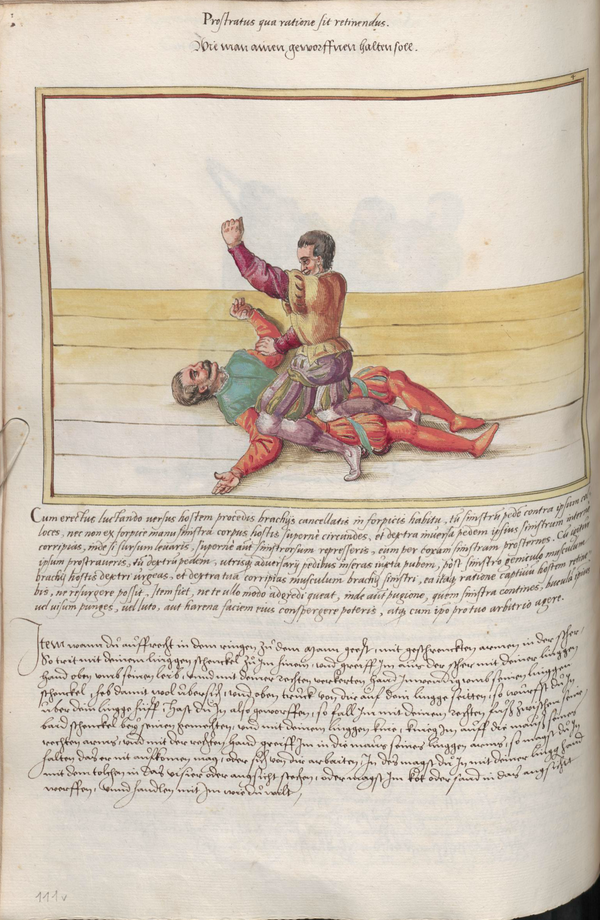 Prostratus qua ratione sit retinendus.
Wie man ainen geworffnen halten soll.
Cum erectus luctando versus hostem procedis brachijs cancellatis in forpicis habitu, tu sinistrū pedē contra ipsum
loces, nec non ex forpice manu sinistra corpus hostis supernè circundes, et dextra inversa pedem ipsius sinistrum
corripias, inde si sursum levaris, supernè aut sinistrorsum represseris, eum per coxam sinistram prosternes. Cū
ipsum prostraveris, tū dextrū pedem, utrisq adversarij pedibus inseras iuxta pubem, post sinistro geniculo musculum
brachij hostis dextri urgeas, et dextra tua corripias musculum brachij sinistri, ea itaq ratione captivū hostem
bis, ne resurgere possit. Item sict, ne te ullo modo adgredi queat, inde aut pugione, quem sinistra contines,
vel visum punges, vel luto, aut harena faciem eius conspergere poteris, atq cum ipo pro tuo arbitrio agere.
Item wann dū aūffrecht in dem ringen zū dem Mann geest, mit geschrenckten armen in der scher
So trit mit deinem linggen schenckel zū Im hinein, vnd greiff Im aūs der scher mit deiner linggen
hand oben vmb seinen leib, vnnd mit deiner rechten verkerten hand Innwendig vmb seinen linggen
schenckel, heb damit wol übersich, vnd oben trūck von dir aūff dein lingge seitten, so wūrffst dū In
über dein lingge hūff. Hast dū In also geworffen, so fall Im mit deinem rechten fūß zwischen seine
baid schenckel beÿ seinen gemechten, vnd mit deinem linggen knie, knieg Im aūff die maūß seines
rechten arms, vnd mit der rechten hand greiff Im in die maūs seines linggen arms, so magst dū In
halten das er nit aūfkomen mag, oder sich von dir arbaiten, In des magst dū In mit deiner lingg hand
mit dem tolchen in das visier oder angsicht stechen, oder magst Im kot oder sand in das angsicht
werffen, vnnd handlen mit Im wie dū wilt,
111v